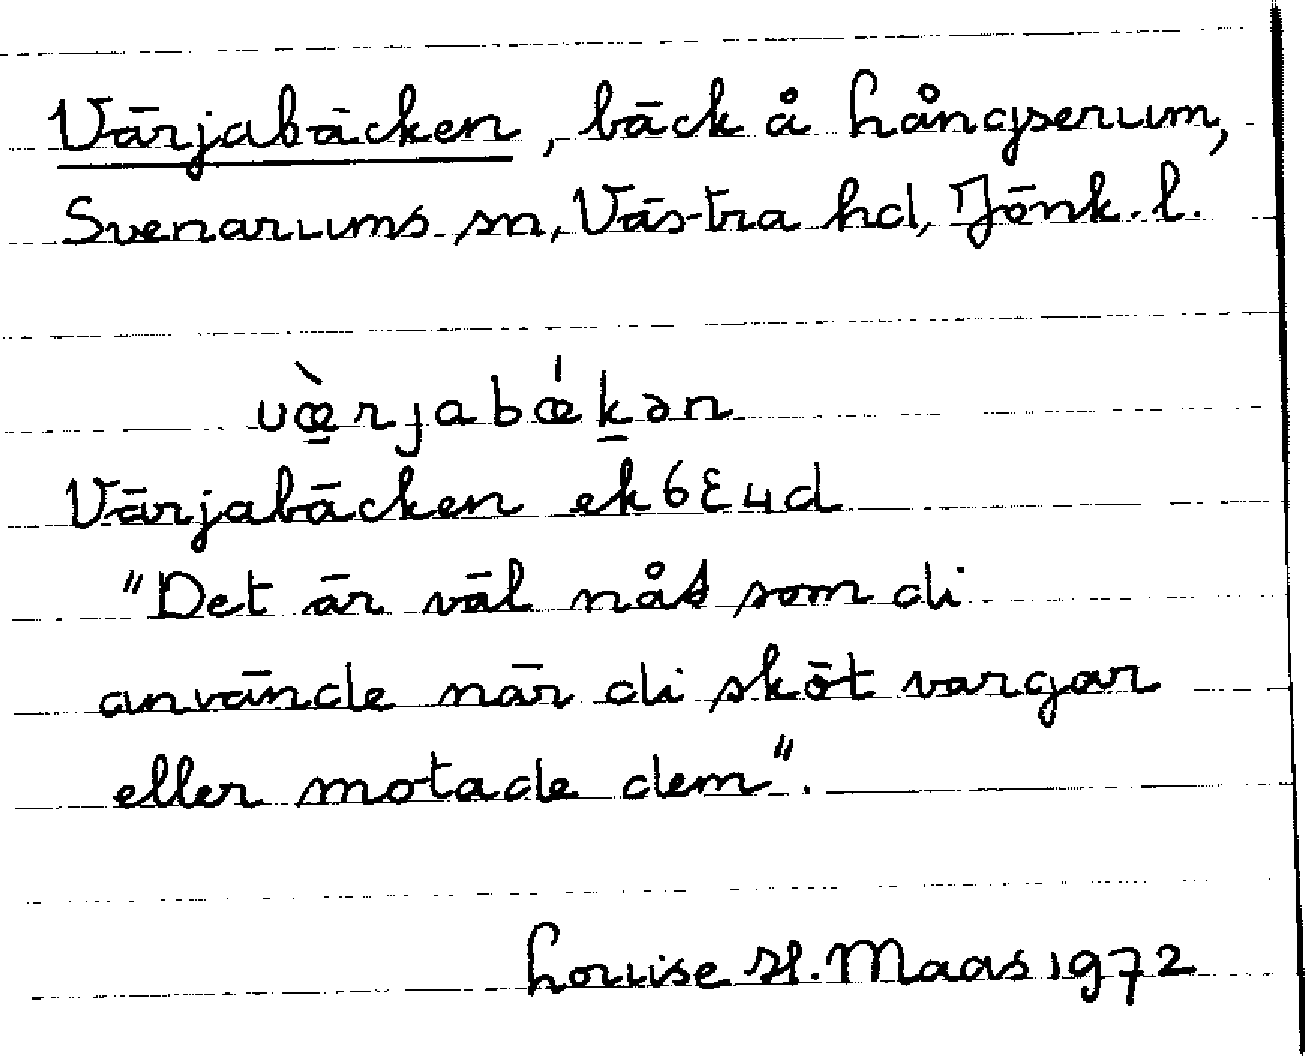 Värjabäcken, bäck å Långserum,
Svenarums sn, Västra hd, Jönk. l.
vœ̀rjabœ́kən
Värjabäcken ek 6E4d
"Det är väl nåt som di
använde när di sköt vargar
eller motade dem".
Louise H. Maas 1972